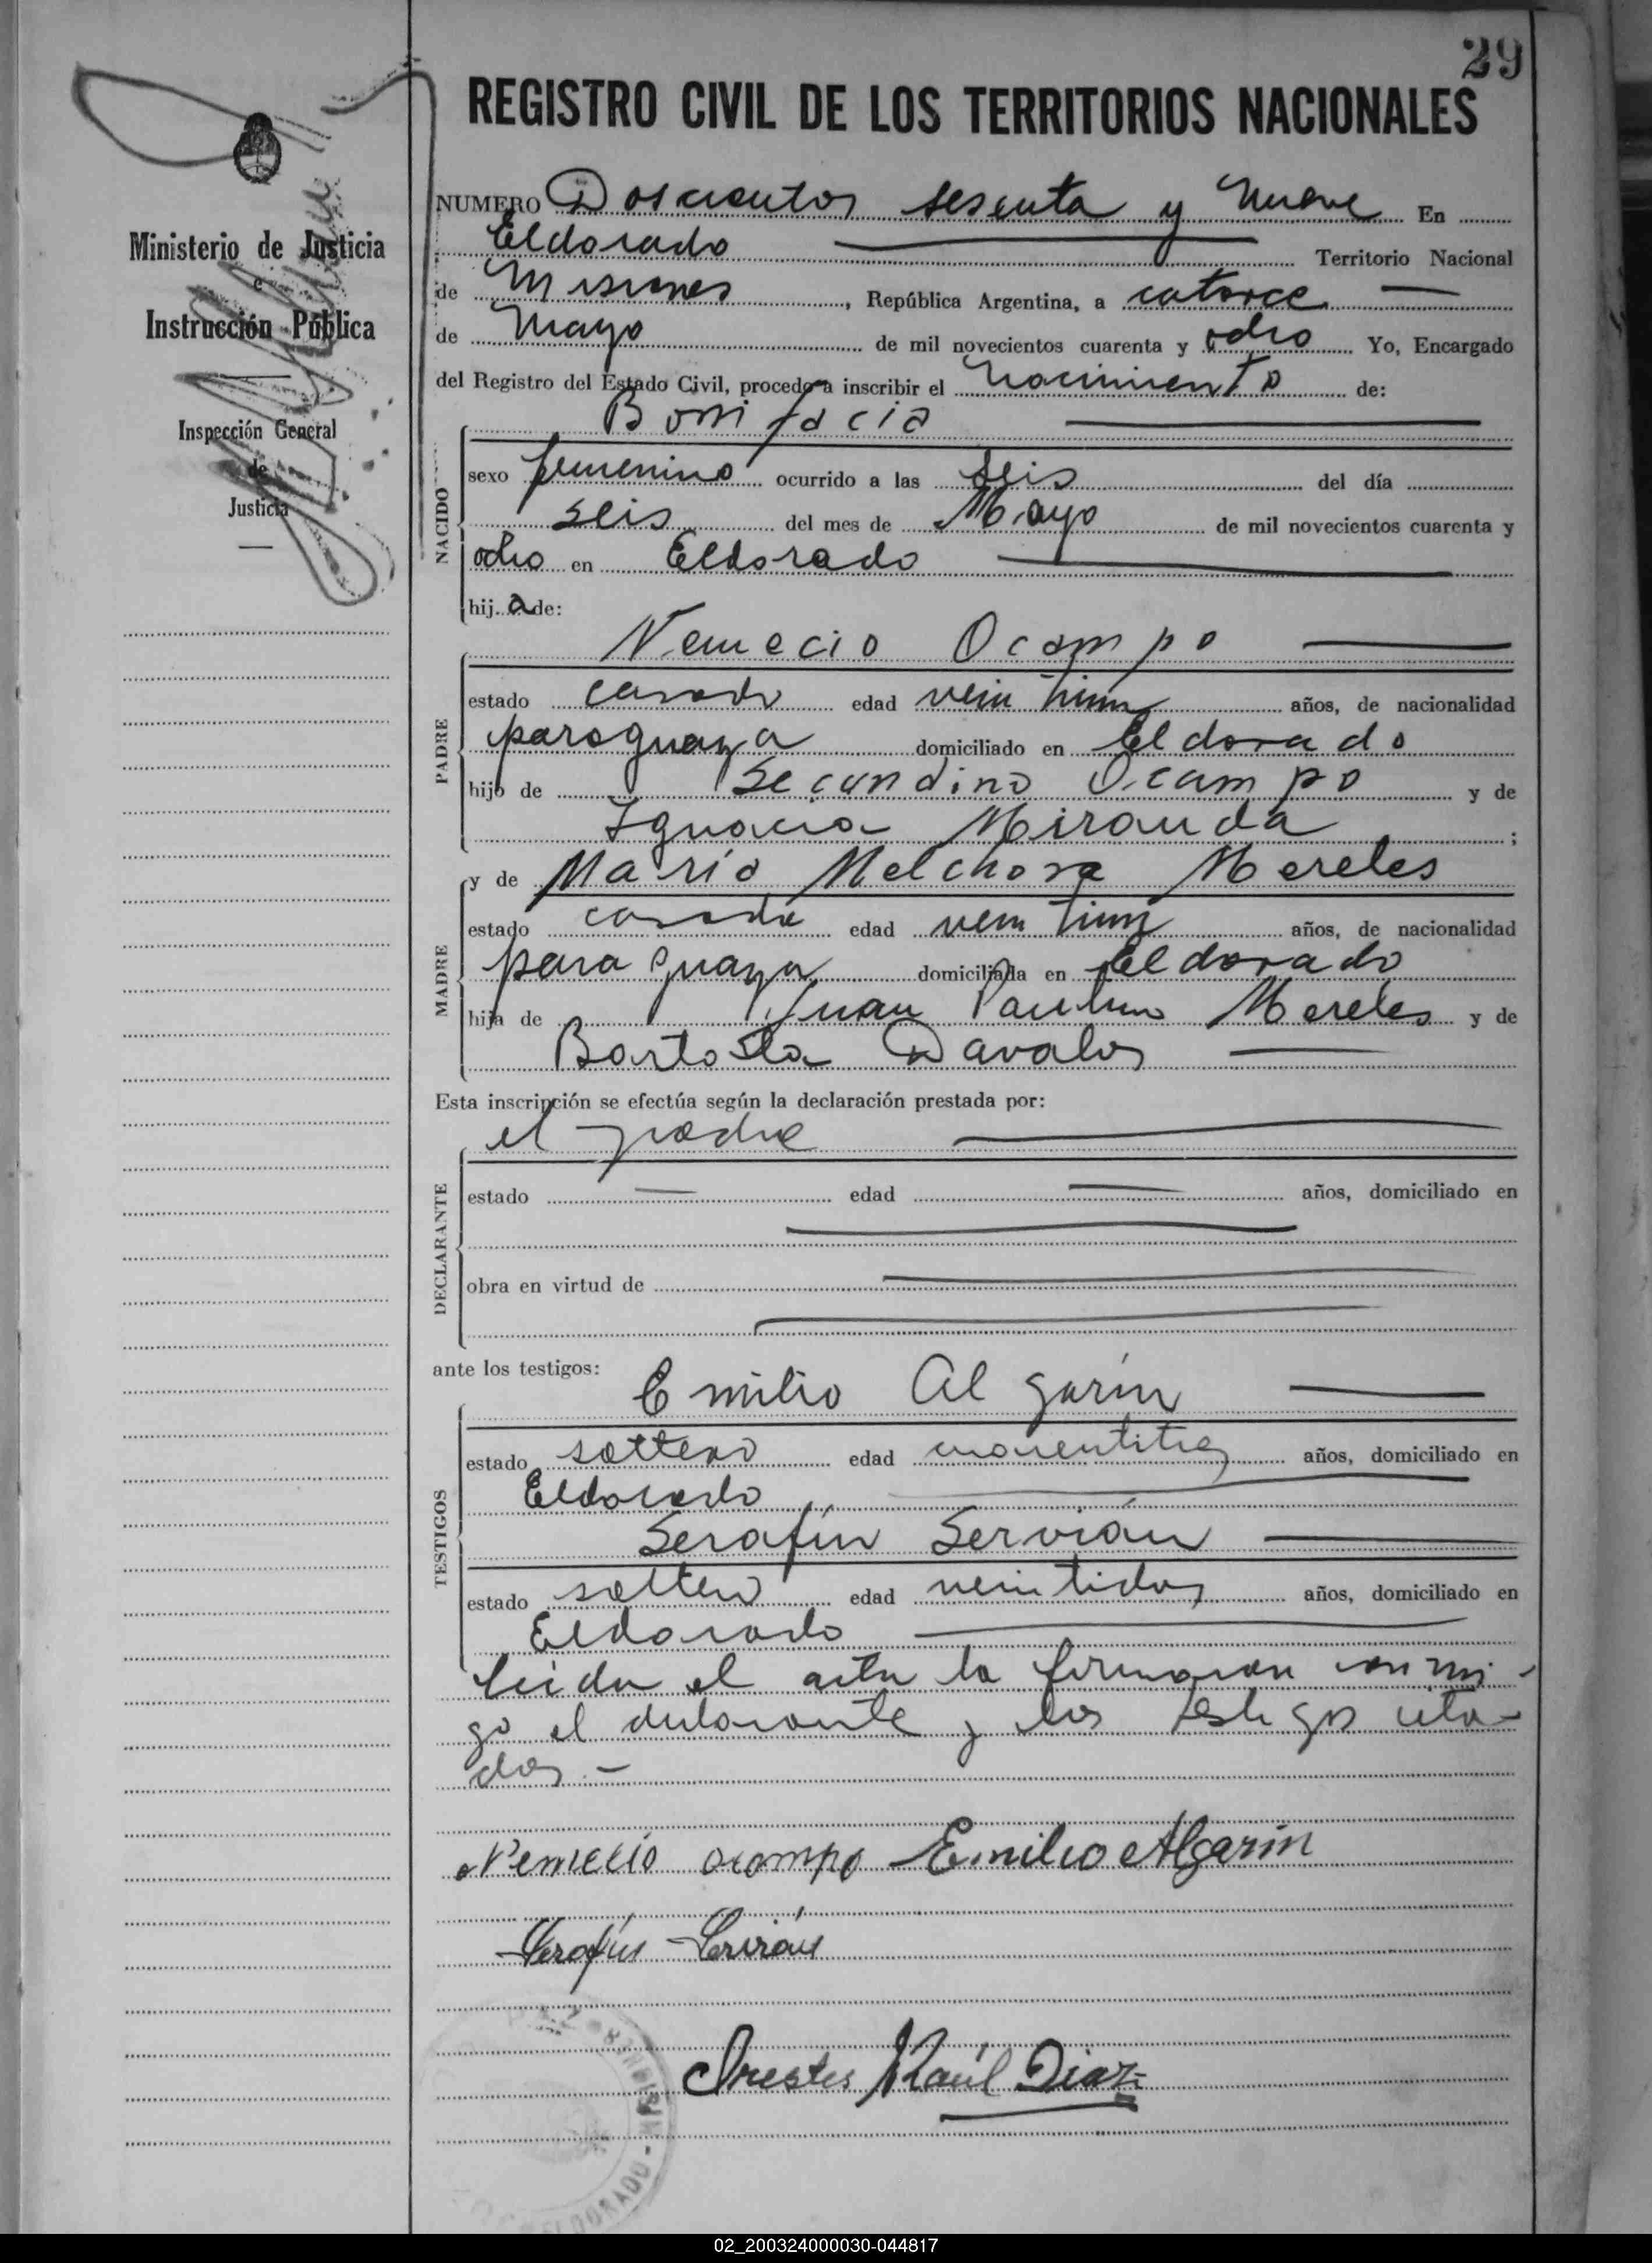 29
REGISTRO CIVIL DE LOS TERRITORIOS NACIONALES
Ministerio de Justicia
e
Instrucción Pública
Inspección General
de
Justicia
NUMERO Doscientos sesenta y nueve En
Eldorado Territorio Nacional
de Misiones, República Argentina, a catorce
de Mayo de mil novecientos cuarenta y ocho Yo, Encargado
del Registro del Estado Civil, procedo a inscribir el Nacimiento de:
Bonifacia
NACIDO
sexo femenino ocurrido a las seis del día
seis del mes de Mayo de mil novecientos cuarenta y
ocho en Eldorado
hija de:
Nemecio Ocampo
PADRE
estado casado edad veintiun años, de nacionalidad
paraguaya domiciliado en Eldorado
hijo de Secundino Ocampo y de
Ignacia Miranda ;
y de Maria Melchora Mereles
MADRE
estado casada edad veintiun años, de nacionalidad
paraguaya domiciliada en Eldorado
hija de Juan Paulino Mereles y de
Bartola Davalos
Esta inscripción se efectúa según la declaración prestada por:
el padre
DECLARANTE
estado edad años, domiciliado en
obra en virtud de
ante los testigos:
Emilio Algarin
TESTIGOS
estado soltero edad cuarentitres años, domiciliado en
Eldorado
Serafín Servián
estado soltero edad veintidos años, domiciliado en
Eldorado
Leida el acta la firmaron conmi-
go el declarante y los testigos cita-
dos.-
Nemecio ocampo Emilio Algarin
Serafín Servián
Orestes Raúl Diaz
ELDORADO - MISIONES
02_200324000030-044817